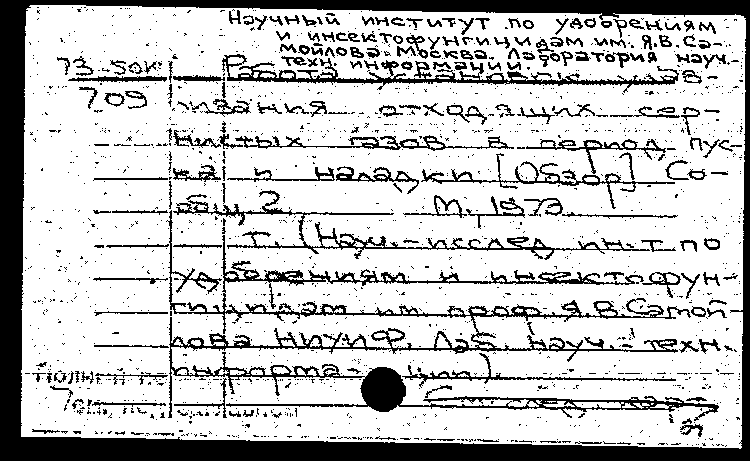 Научный институт по удобрениям
и инсектофунгицидам им. Я.В. Са-
мойлова. Москва. Лаборатория науч.-
техн. информации.
73-5ок Работа установок улав-
709 ливания отходящих сер-
нистых газов в период пус-
ка и наладки [Обзор]. Со-
общ. 2. М., 1973.
т. (Науч.-исслед. ин-т по
удобрениям и инсектофун-
гицидам им. проф. Я.В. Самой-
лова НИУИФ. Лаб. науч.-техн.
информа- ции).
См. след. карт.